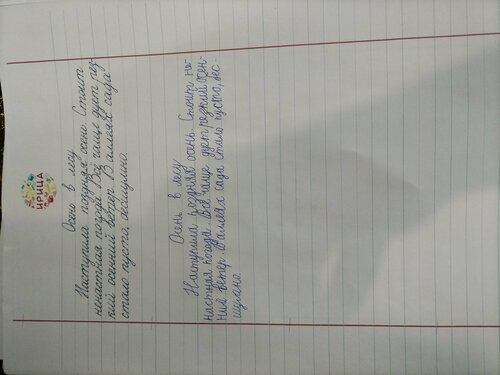 ИРИЦА
Осень в лесу
Наступила поздняя осень. Стоит
ненастная погода. Всё чаще дует рез-
кий осенний ветер. В аллеях сада
стало пусто, бесшумно.
Осень в лесу
Наступила поздняя осень. Стоит не-
настная погода. Всё чаще дует резкий осен-
ний ветер. В аллеях сада стало пусто, бес-
шумно.